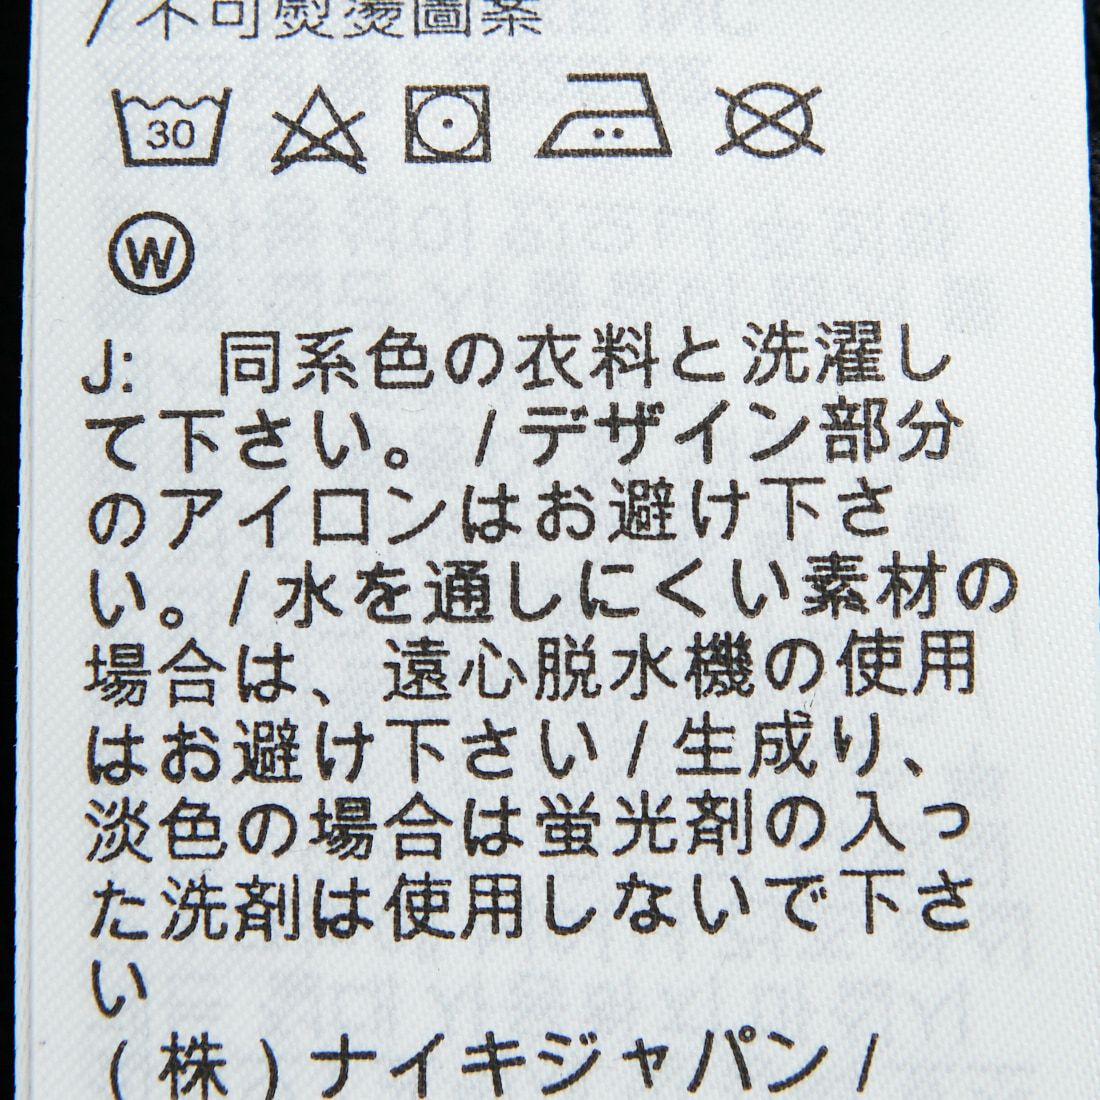 /不可熨燙圖案
30
W
J: 同系色の衣料と洗濯し
て下さい。/デザイン部分
のアイロンはお避け下さ
い。/水を通しにくい素材の
場合は、遠心脱水機の使用
はお避け下さい/生成り、
淡色の場合は蛍光剤の入っ
た洗剤は使用しないで下さ
い
(株)ナイキジャパン/